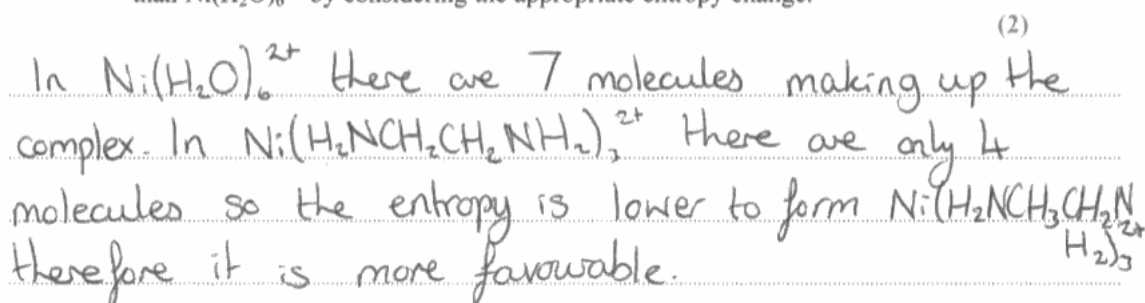 than Ni(H₂O)₆²⁺ by considering the appropriate entropy change.
(2)
In Ni(H₂O)₆²⁺ there are 7 molecules making up the
complex. In Ni(H₂NCH₂CH₂NH₂)₃²⁺ there are only 4
molecules so the entropy is lower to form Ni(H₂NCH₃CH₂N
H₂)₃²⁺
therefore it is more favourable.